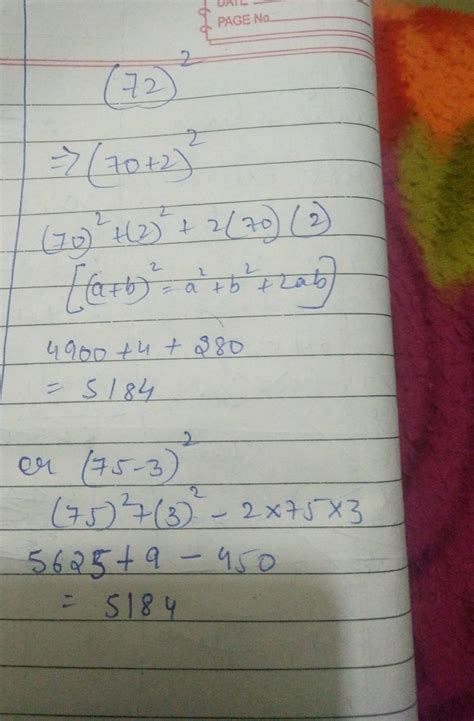 DATE
PAGE No.
(72)²
⇒ (70+2)²
(70)²+(2)² + 2(70)(2)
[(a+b)² = a²+b²+2ab]
4900 +4 + 280
= 5184
or (75-3)²
(75)²+(3)² - 2×75×3
5625+9 - 450
= 5184